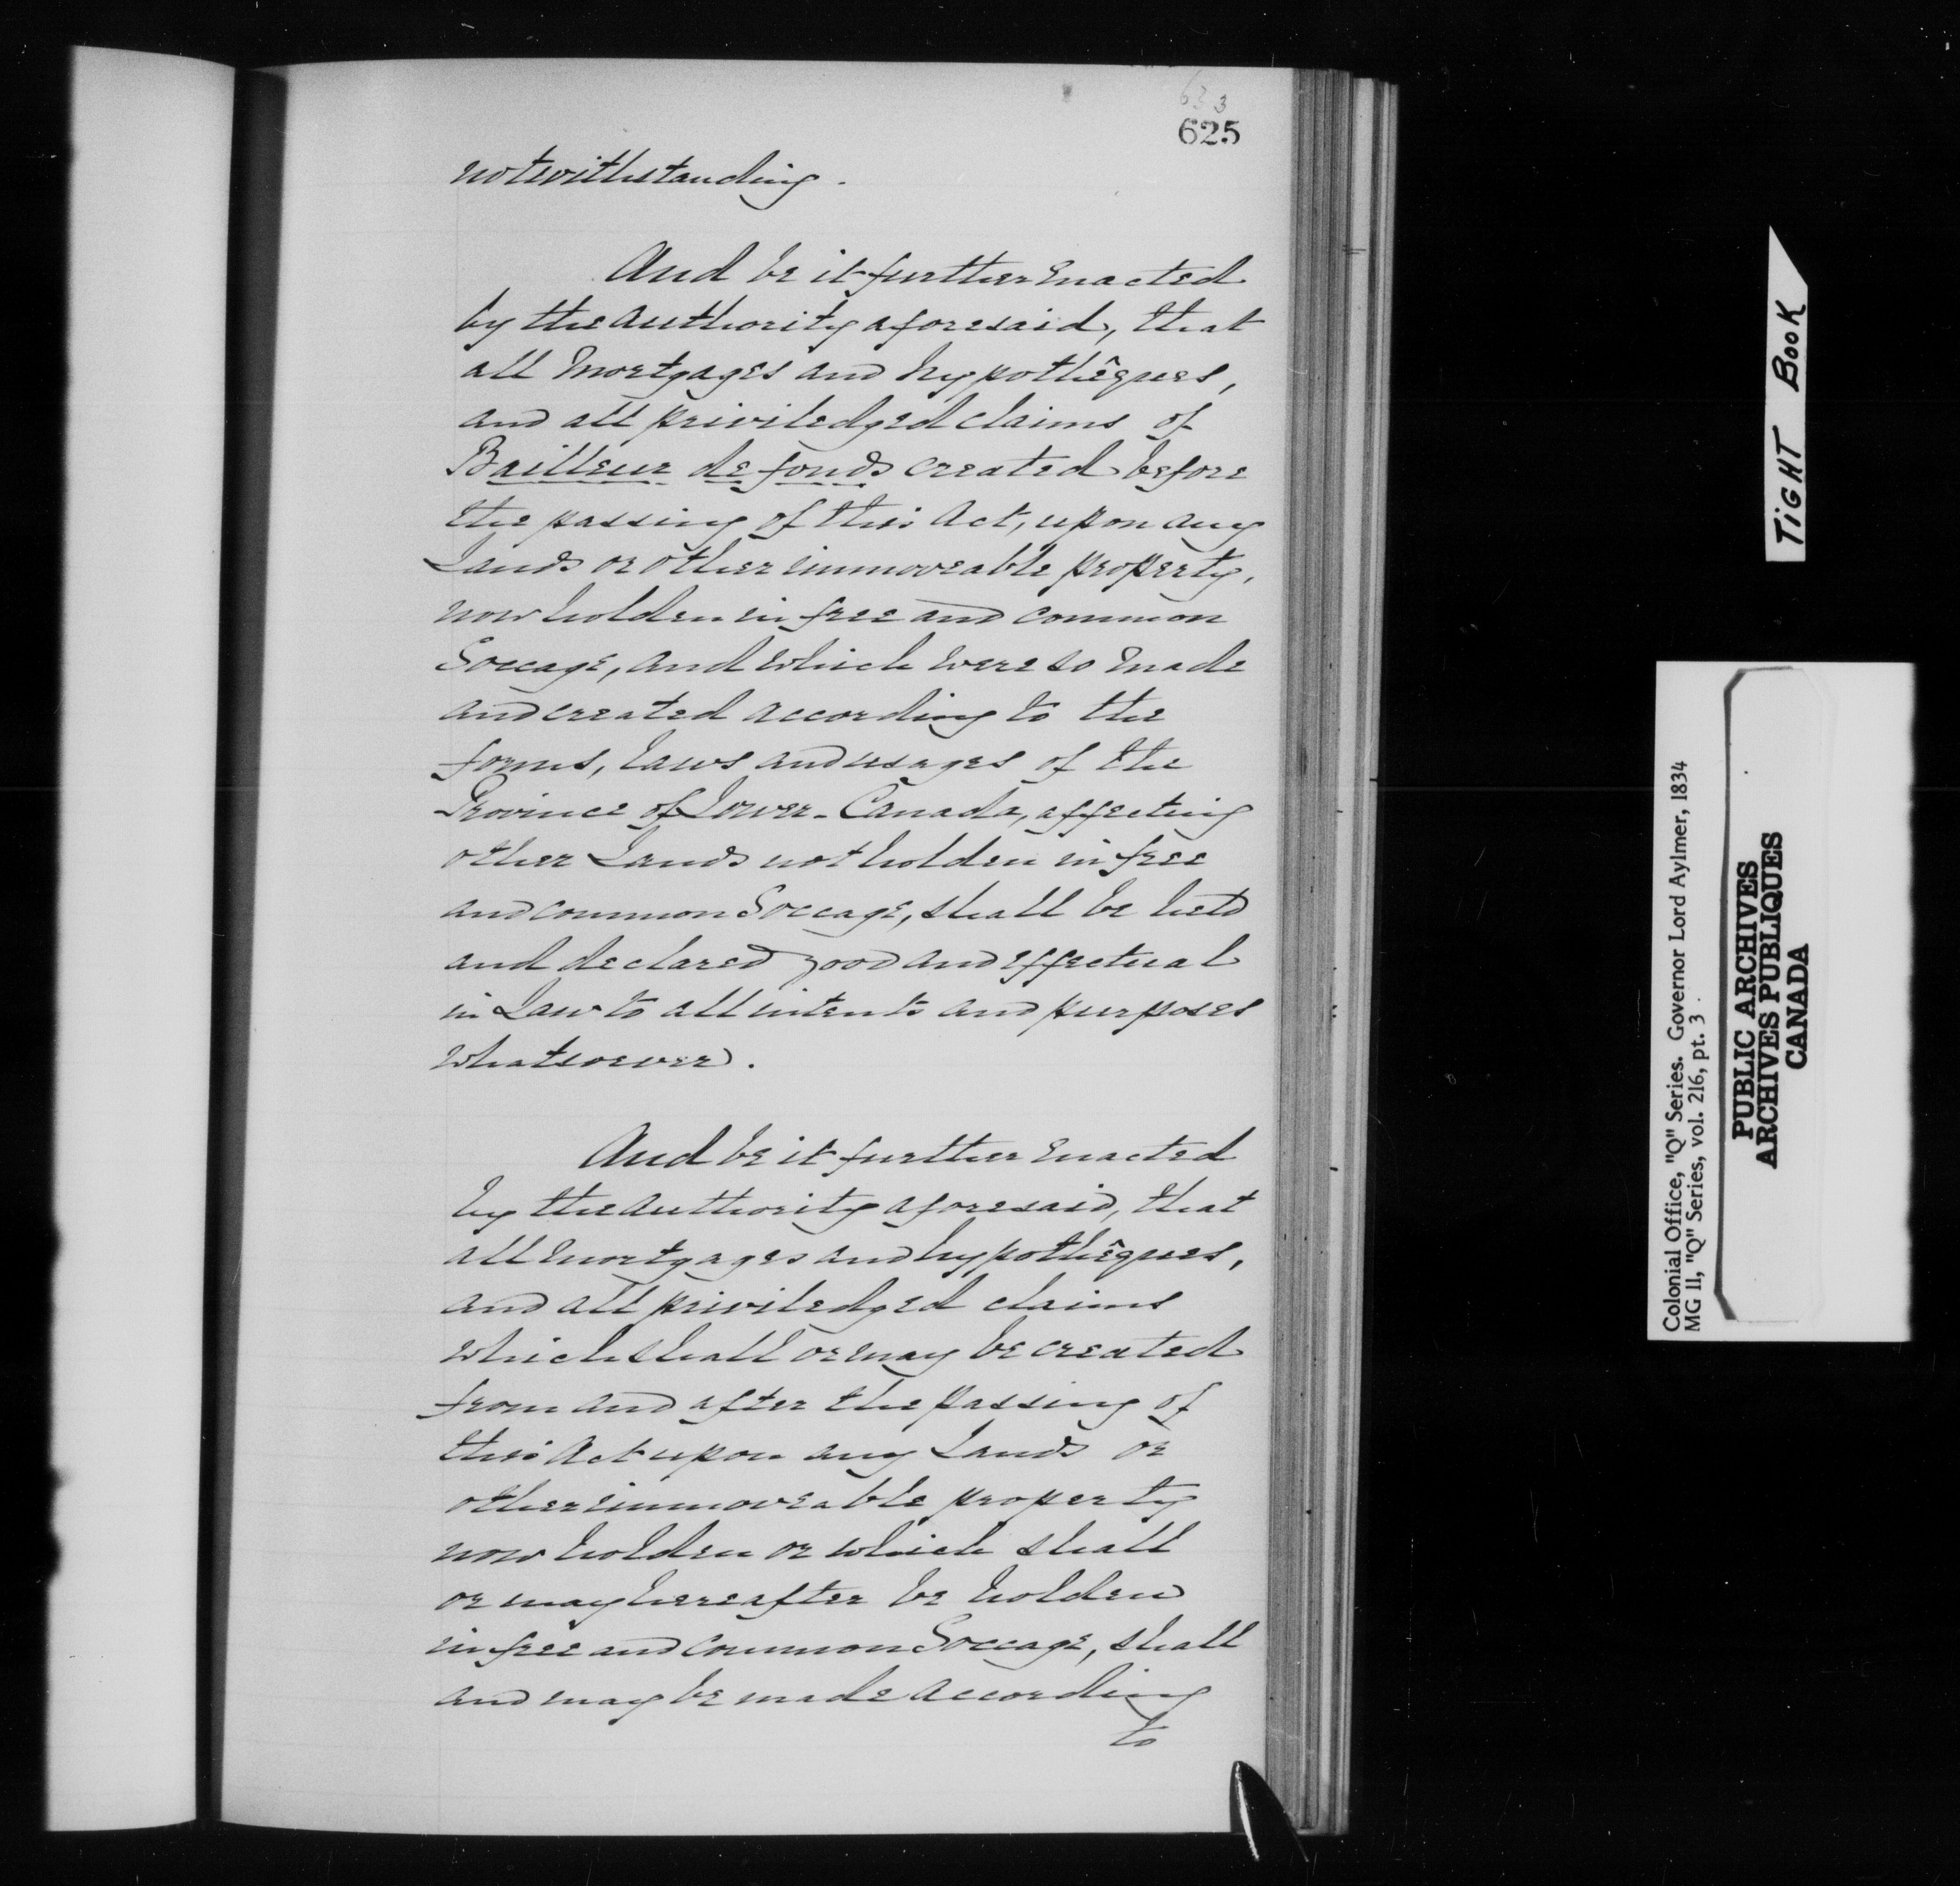 633
625
notwithstanding.
And be it further Enacted
by the Authority aforesaid, that
all Mortgages and hypothêques,
and all priviledged claims of
Bailleur de fonds created before
the passing of this Act, upon any
Lands or other immoveable property,
now holden in free and common
Soccage, and which were so made
and created according to the
forms, laws and usages of the
Province of Lower-Canada, affecting
other Lands not holden in free
and common Soccage, shall be held
and declared good and effectual
in Law to all intents and purposes
whatsoever.
And be it further Enacted
by the Authority aforesaid, that
all mortgages and hypothêques,
and all priviledged claims
which shall or may be created
from and after the passing of
this Act upon any Lands or
other immoveable property
now holden or which shall
or may hereafter be holden
in free and common Soccage, shall
and may be made according
to
TIGHT BOOK
Colonial Office, "Q" Series. Governor Lord Aylmer, 1834
MG 11, "Q" Series, vol. 216, pt. 3
PUBLIC ARCHIVES
ARCHIVES PUBLIQUES
CANADA